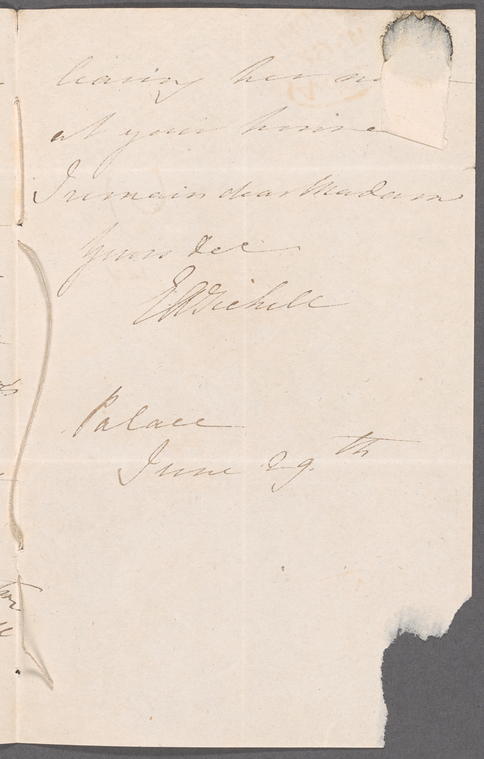 leaving her
at your house
I remain dear Madam
Yours &c &c
Palace
June 29th